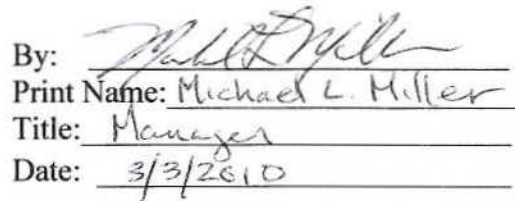 By: Michael L Miller
Print Name: Michael L. Miller
Title: Manager
Date: 3/3/2010